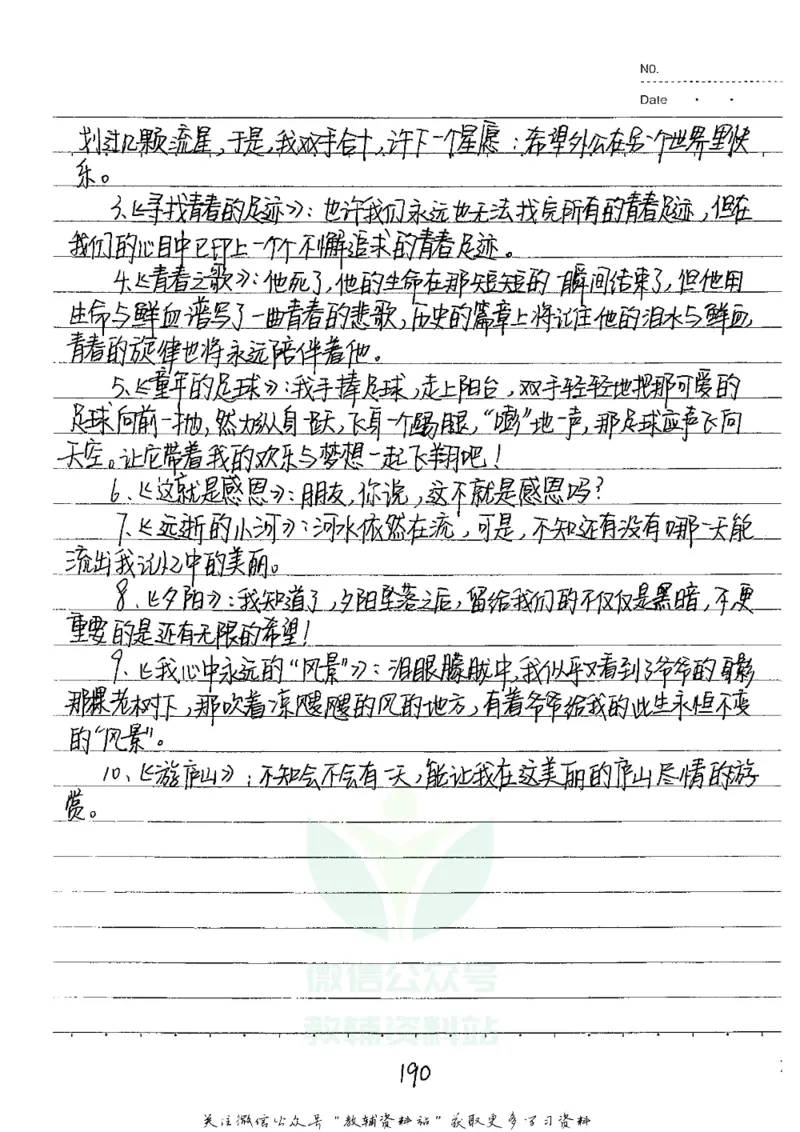 NO.
Date
划过几颗流星,于是,我双手合十,许下一个星愿:希望外公在另一个世界里快
乐。
3、《寻找青春的足迹》:也许我们永远也无法找完所有的青春足迹,但在
我们的心目中已印上一个个不懈追求的青春足迹。
4、《青春之歌》:他死了,他的生命在那短短的一瞬间结束了,但他用
生命与鲜血谱写了一曲青春的悲歌,历史的篇章上将记住他的泪水与鲜血,
青春的旋律也将永远陪伴着他。
5、《童年的足球》:我手捧足球,走上阳台,双手轻轻地把那可爱的
足球向前一抛,然后纵身一跃,飞身一个踢腿,“嘭”地一声,那足球应声飞向
天空。让它带着我的欢乐与梦想一起飞翔吧!
6、《这就是感恩》:朋友,你说,这不就是感恩吗?
7、《远逝的小河》:河水依然在流,可是,不知还有没有哪一天能
流出我记忆中的美丽。
8、《夕阳》:我知道了,夕阳坠落之后,留给我们的不仅仅是黑暗,不,更
重要的是还有无限的希望!
9、《我心中永远的“风景”》:泪眼朦胧中,我似乎又看到了爷爷的身影
那棵老树下,那吹着凉飕飕的风的地方,有着爷爷给我的此生永恒不变
的“风景”。
10、《游庐山》:不知会不会有一天,能让我在这美丽的庐山尽情的游
赏。
微信公众号
教辅资料站
190
关注微信公众号“教辅资料站”获取更多学习资料